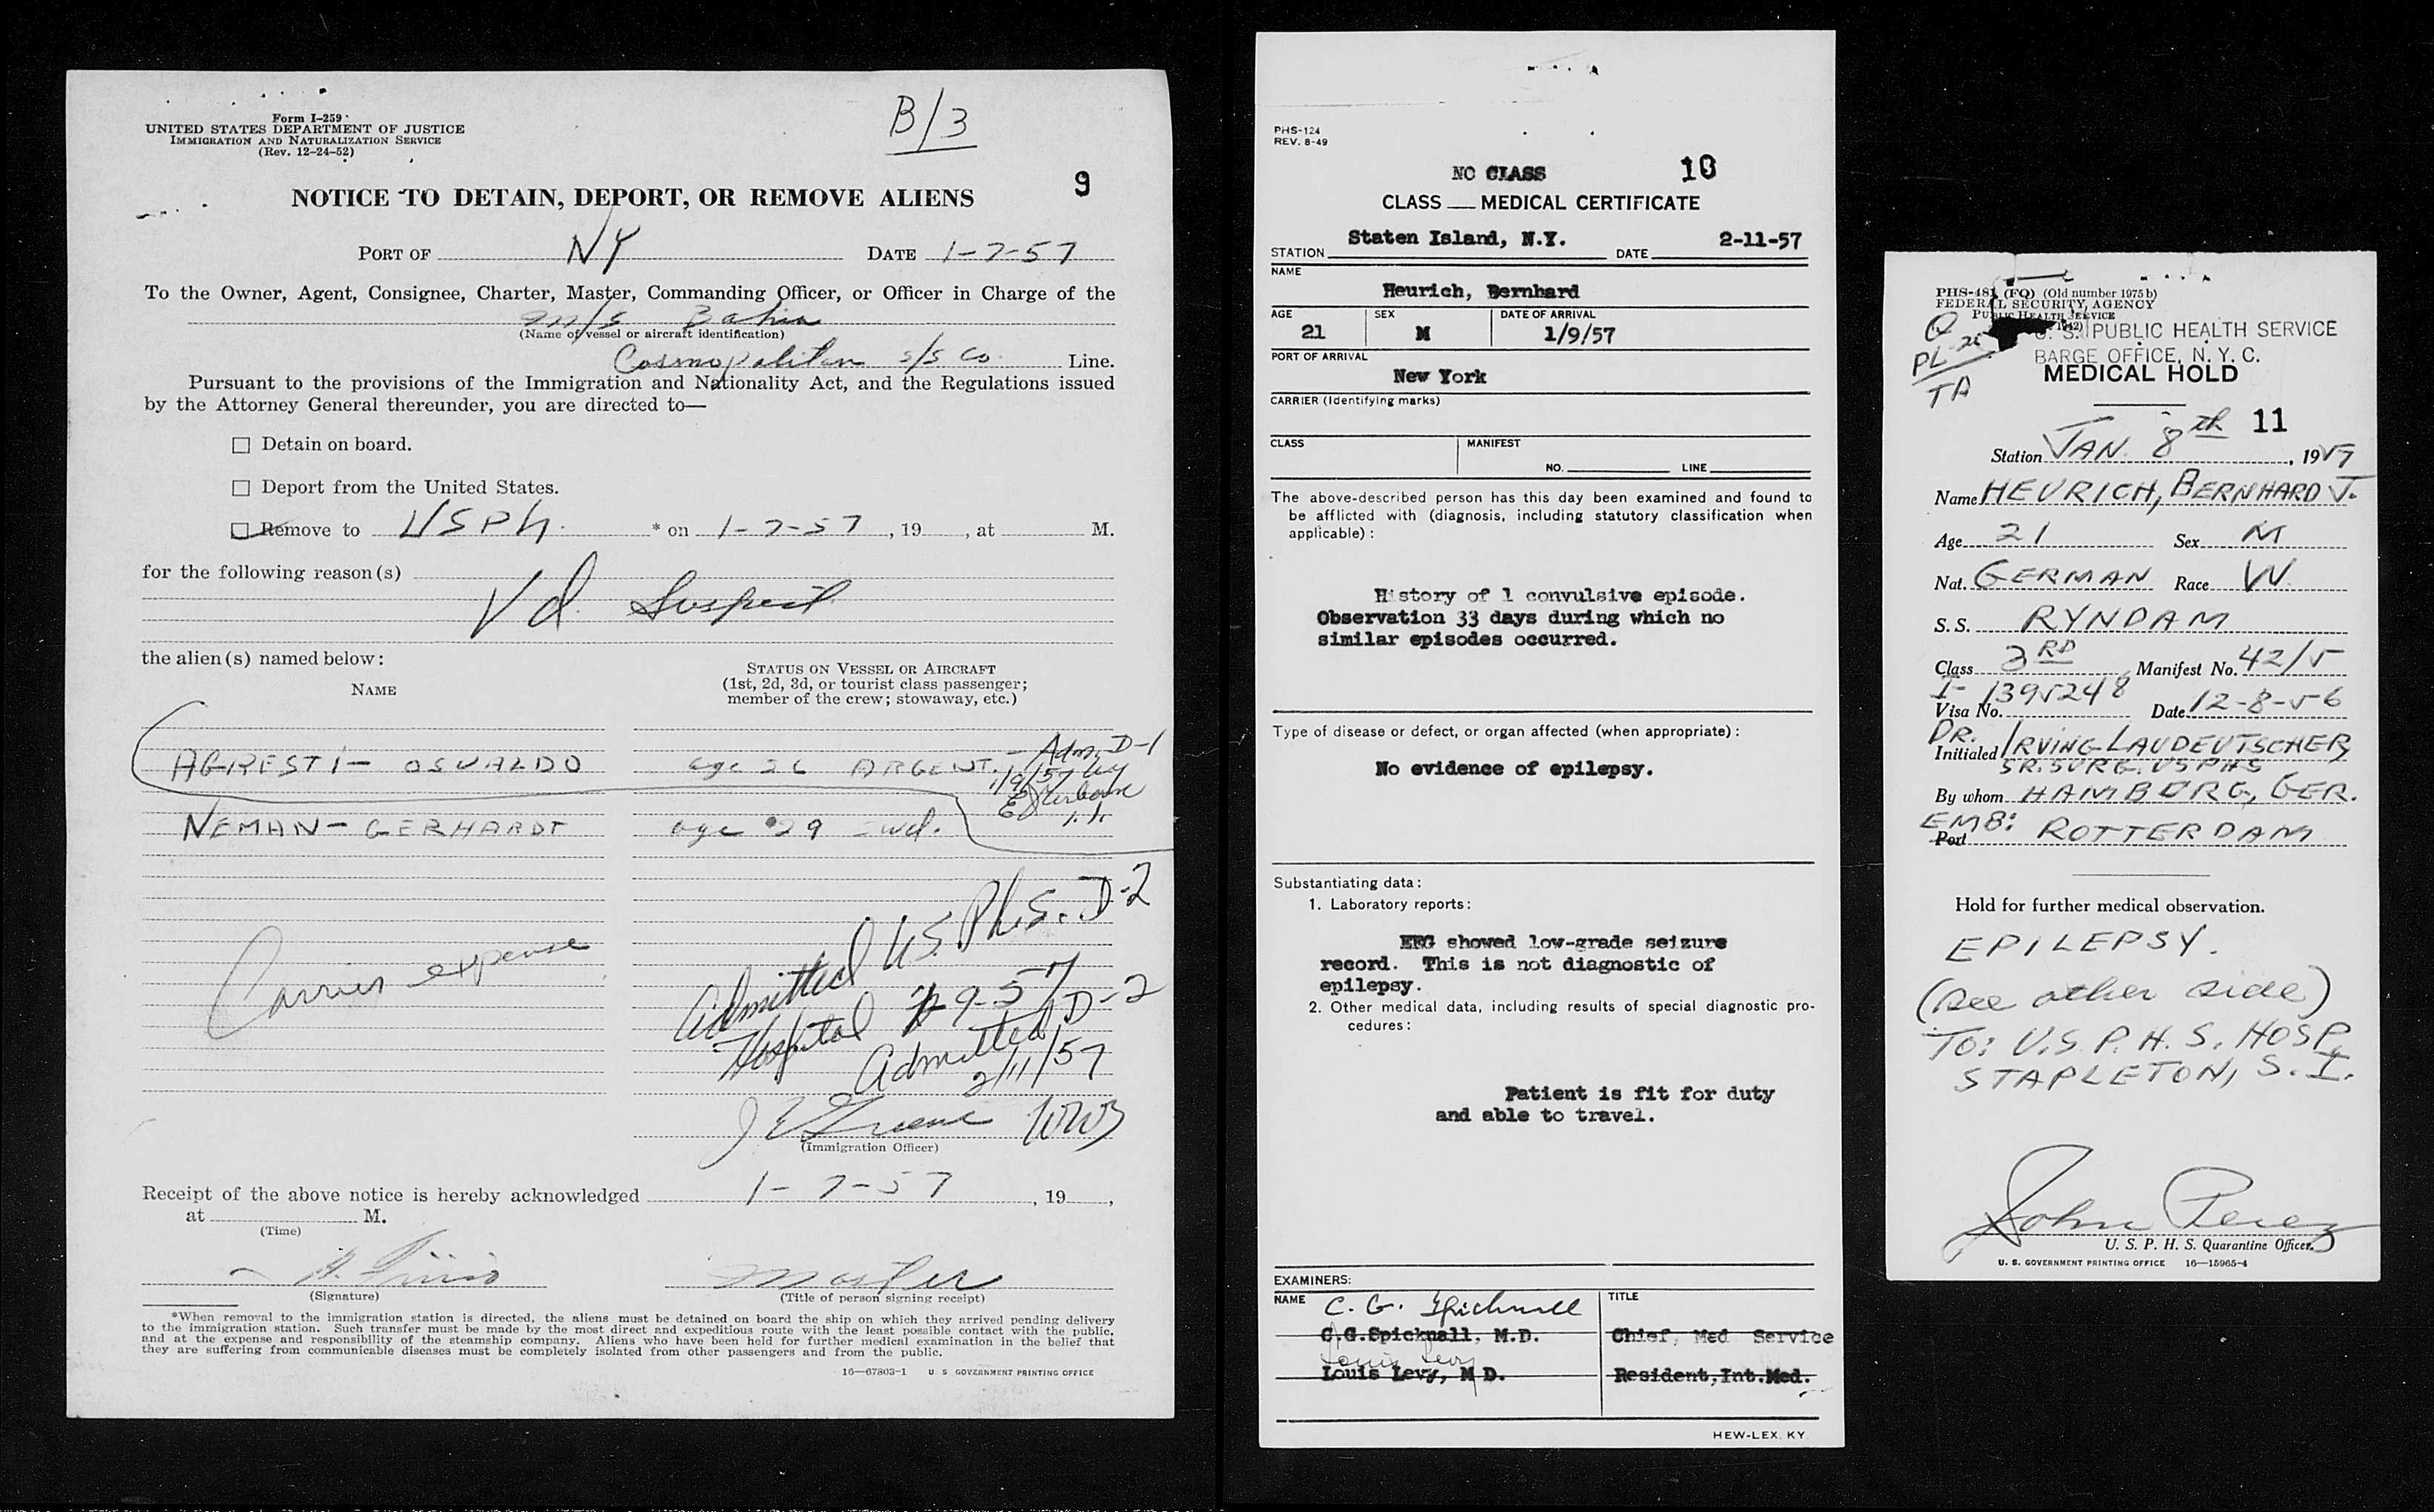 Form I-259
UNITED STATES DEPARTMENT OF JUSTICE
IMMIGRATION AND NATURALIZATION SERVICE
(Rev. 12-24-52)
B/3
9
NOTICE TO DETAIN, DEPORT, OR REMOVE ALIENS
PORT OF NY DATE 1-7-57
To the Owner, Agent, Consignee, Charter, Master, Commanding Officer, or Officer in Charge of the
m/s Bahia
(Name of vessel or aircraft identification)
Cosmopolitan s/s Co. Line.
Pursuant to the provisions of the Immigration and Nationality Act, and the Regulations issued
by the Attorney General thereunder, you are directed to—
☐ Detain on board.
☐ Deport from the United States.
☐ Remove to USPH. * on 1-7-57, 19 , at M.
for the following reason(s)
Vd. Suspect
the alien(s) named below:
NAME
STATUS ON VESSEL OR AIRCRAFT
(1st, 2d, 3d, or tourist class passenger;
member of the crew; stowaway, etc.)
AGRESTI- OSVALDO age 26 ARGENT. - Adm. D-1
1/9/57 by
NEMAN- GERHARDT age 29
Carrier expense
Admitted U.S. P.H.S. D-2
Hospital 1-9-57
Admitted D-2
2/11/57
J E Greene WWB
(Immigration Officer)
Receipt of the above notice is hereby acknowledged 1-7-57, 19 ,
at M.
(Time)
Master
(Signature) (Title of person signing receipt)
*When removal to the immigration station is directed, the aliens must be detained on board the ship on which they arrived pending delivery
to the immigration station. Such transfer must be made by the most direct and expeditious route with the least possible contact with the public,
and at the expense and responsibility of the steamship company. Aliens who have been held for further medical examination in the belief that
they are suffering from communicable diseases must be completely isolated from other passengers and from the public.
16—67803-1 U. S GOVERNMENT PRINTING OFFICE
PHS-124
REV. 8-49
NO CLASS 10
CLASS MEDICAL CERTIFICATE
STATION Staten Island, N.Y. DATE 2-11-57
NAME
Heurich, Bernhard
AGE SEX DATE OF ARRIVAL
21 M 1/9/57
PORT OF ARRIVAL
New York
CARRIER (Identifying marks)
CLASS MANIFEST
NO. LINE
The above-described person has this day been examined and found to
be afflicted with (diagnosis, including statutory classification when
applicable):
History of 1 convulsive episode.
Observation 33 days during which no
similar episodes occurred.
Type of disease or defect, or organ affected (when appropriate):
No evidence of epilepsy.
Substantiating data:
1. Laboratory reports:
EEG showed low-grade seizure
record. This is not diagnostic of
epilepsy.
2. Other medical data, including results of special diagnostic pro-
cedures:
Patient is fit for duty
and able to travel.
EXAMINERS:
NAME TITLE
C. G. Spicknall
C.G.Spicknall, M.D. Chief, Med Service
Louis Levy
Louis Levy, M D. Resident,Int.Med.
HEW-LEX. KY.
PHS-481 (FQ) (Old number 1975b)
FEDERAL SECURITY AGENCY
PUBLIC HEALTH SERVICE
U. S. PUBLIC HEALTH SERVICE
BARGE OFFICE, N. Y. C.
Q
PL-
TA
MEDICAL HOLD
11
Station JAN. 8th, 1957
Name HEURICH, BERNHARD J.
Age 21 Sex M
Nat. GERMAN Race W.
S. S. RYNDAM
Class 3RD Manifest No. 42/5
Visa No. I-1395248 Date 12-8-56
DR.
Initialed IRVING LAUDEUTSCHER,
SR. SURG. USPHS
By whom HAMBURG, GER.
EMB:
Port ROTTERDAM
Hold for further medical observation.
EPILEPSY.
(see other side)
TO: U.S.P.H.S. HOSP,
STAPLETON, S.I.
John Perez
U. S. P. H. S. Quarantine Officer.
U. S. GOVERNMENT PRINTING OFFICE 16—15965-4